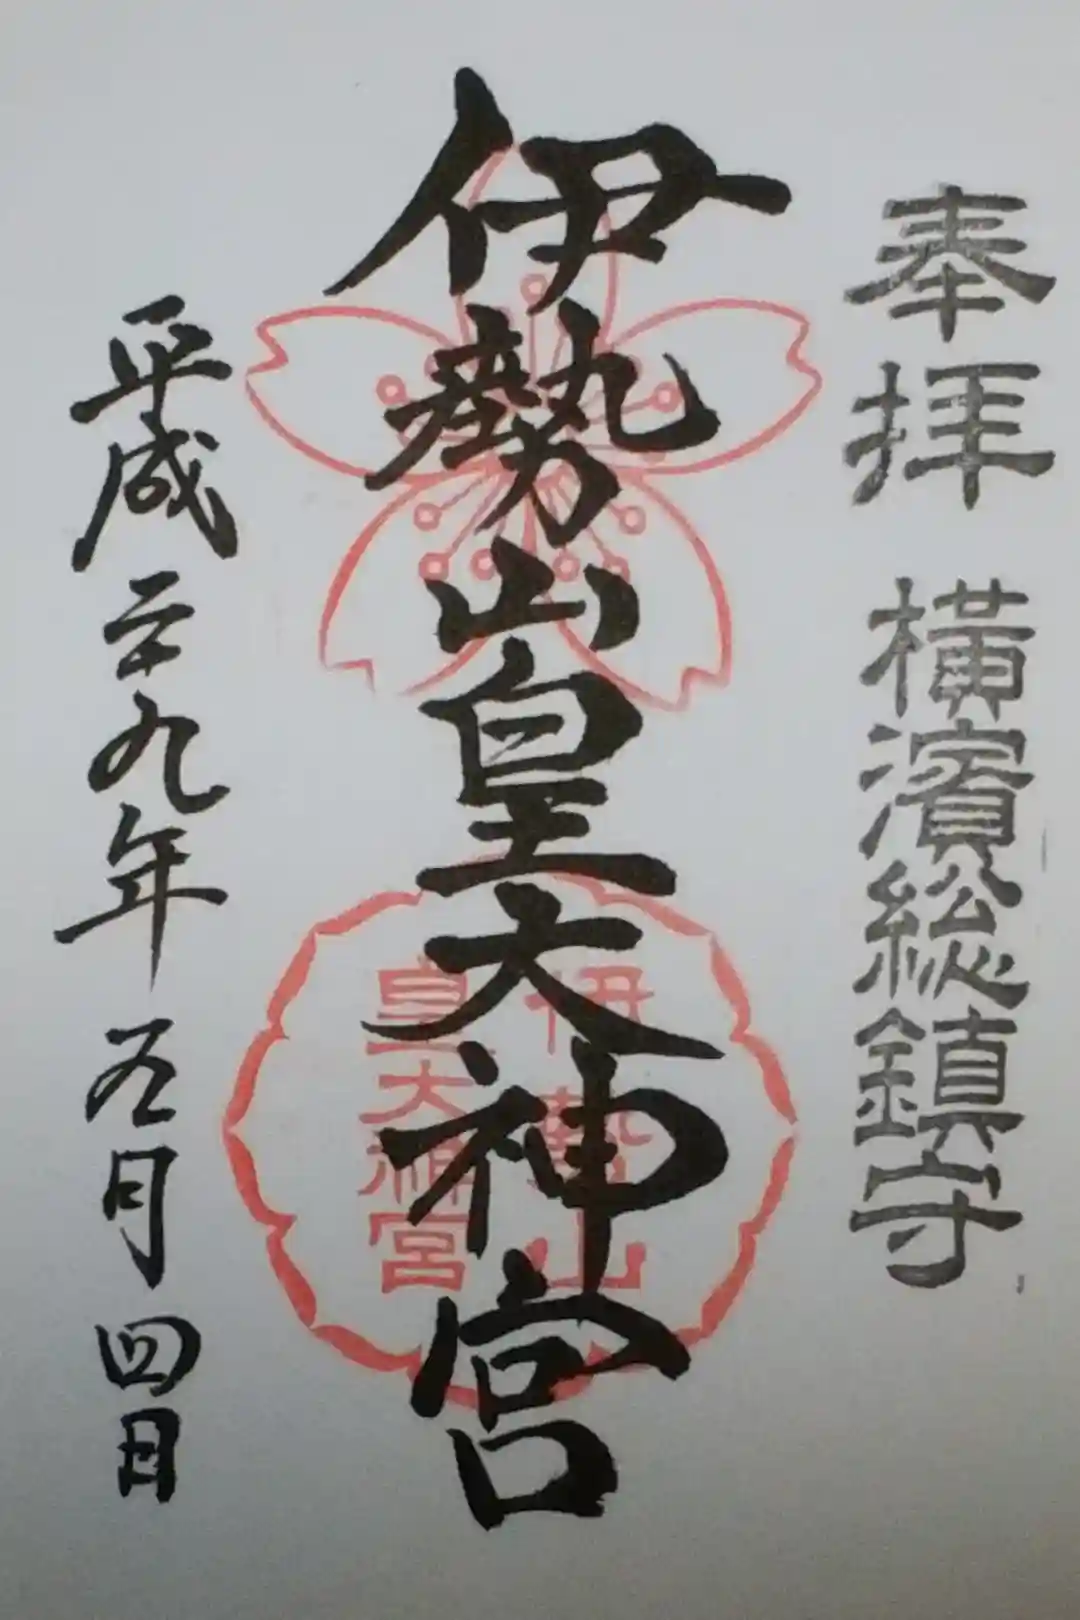 奉拝 横濱総鎮守
伊勢山皇大神宮
伊勢山
皇大神宮
平成二九年五月四日